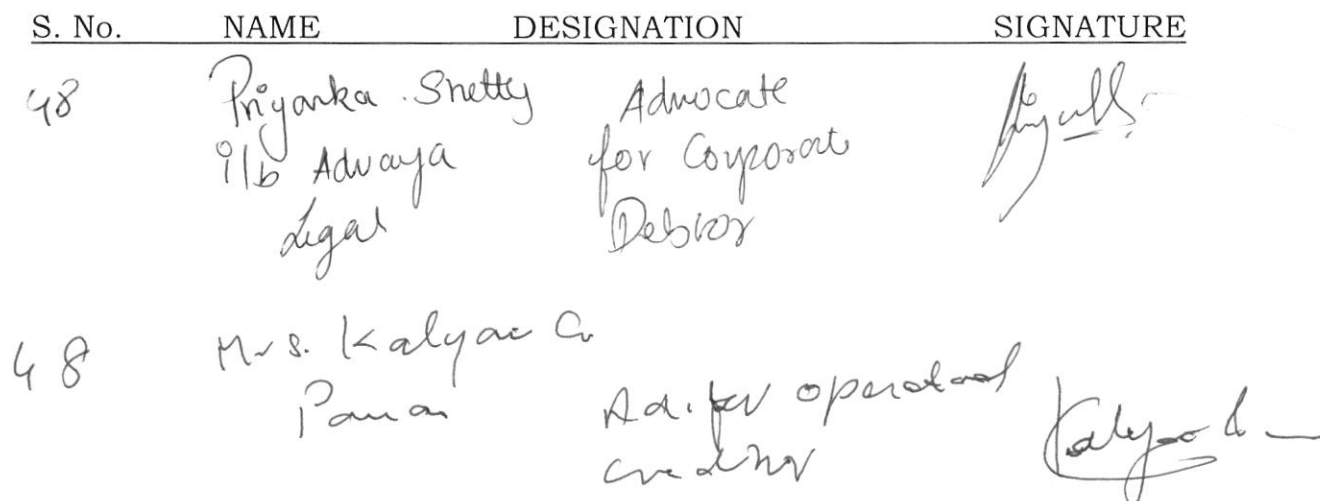 S. No. NAME DESIGNATION SIGNATURE
48 Priyanka Shetty Advocate
i/b Advaya for Corporate
Legal Debtor
48 Mrs. Kalyani G.
Ad. for operational
creditor